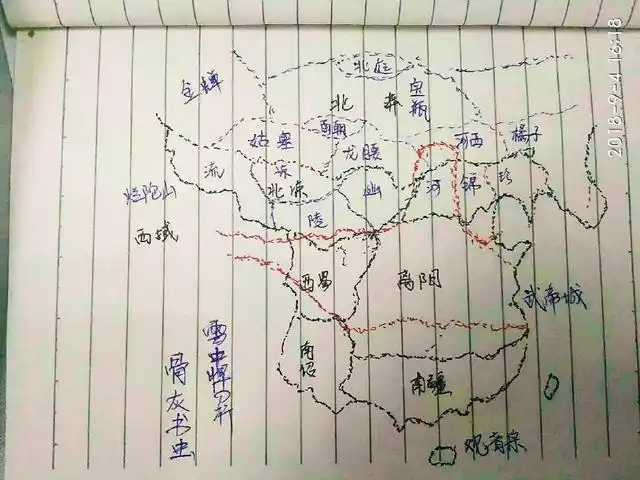 北庭
金蟾
北莽
宝瓶
姑塞
西河
橘子
龙腰
流
北凉
幽
河
锦
烂陀山
西域
陵
西蜀
离阳
武帝城
雪中悍刀行
骨灰书虫
南诏
南疆
观音宗
2018-9-4 16:18